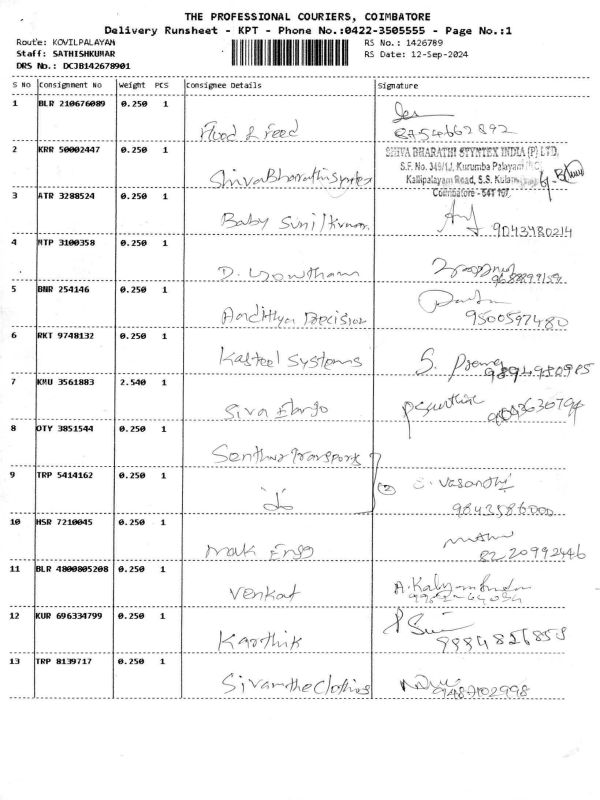 THE PROFESSIONAL COURIERS, COIMBATORE
Delivery Runsheet - KPT - Phone No.:0422-3505555 - Page No.:1
Route: KOVILPALAYAM RS No.: 1426789
Staff: SATHISHKUMAR RS Date: 12-Sep-2024
DRS No.: DCJB142678901
S No Consignment No Weight PCS Consignee Details Signature
1 BLR 210676089 0.250 1
Flood & Feed 8754662892
2 KRR 50002447 0.250 1 SHIVA BHARATHI SPYNTEX INDIA (P) LTD,
S.F. No. 349/1J, Kurumba Palayam
Shiva Bharathi Spyntex Kallipalayam Road, S.S. Kulam
Coimbatore - 641 107.
3 ATR 3288524 0.250 1
Baby Sunilkumar 9043480214
4 MTP 3100358 0.250 1
D. Gowtham
5 BNR 254146 0.250 1
Aadithya Precision 9500597480
6 RKT 9748132 0.250 1
Kasteel Systems S. 9894980985
7 KMU 3561883 2.540 1
Siva
8 OTY 3851544 0.250 1
Senthur Transports
9 TRP 5414162 0.250 1
(2) S. Vasanthi
9843586000
10 HSR 7210045 0.250 1
Mak Engg 8220992446
11 BLR 4800805208 0.250 1
Venkat A.
12 KUR 696334799 0.250 1
Karthik 9994856858
13 TRP 8139717 0.250 1
Sivamthe Clothings 9487102998